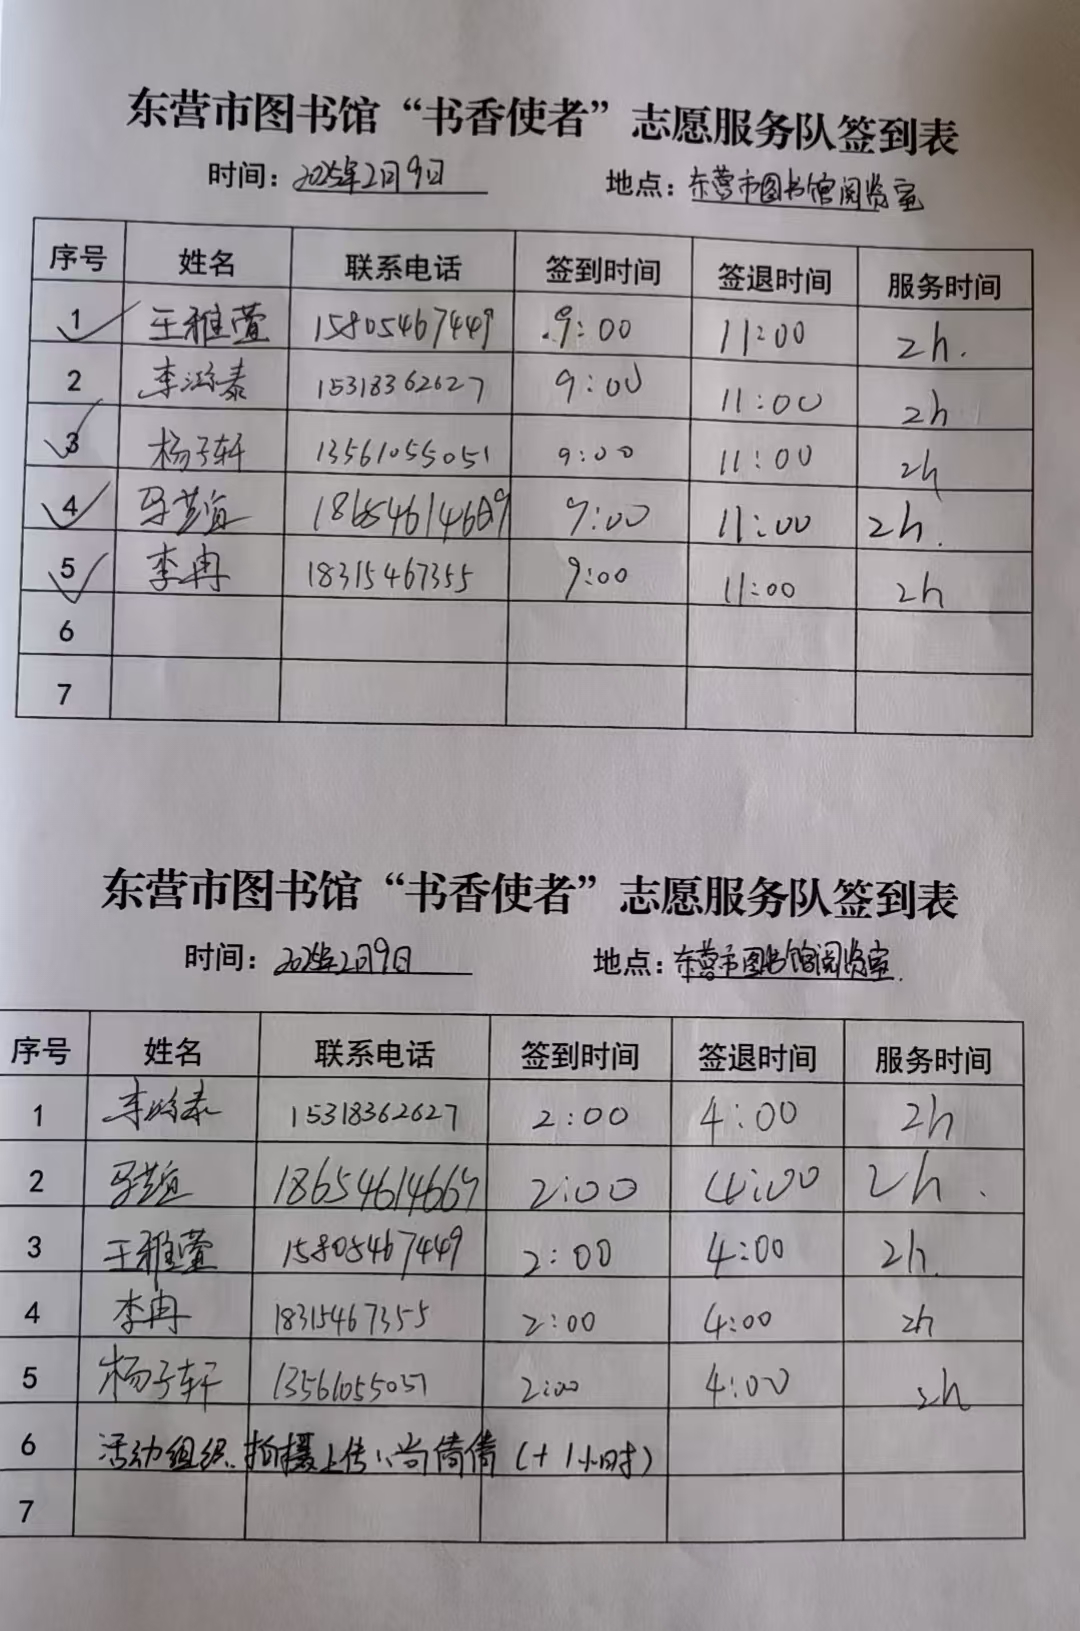 东营市图书馆“书香使者”志愿服务队签到表
时间：2025年2月9日 地点：东营市图书馆阅览室
序号 姓名 联系电话 签到时间 签退时间 服务时间
1 王雅萱 15805467449 9:00 11:00 2h.
2 李鸿泰 15318362627 9:00 11:00 2h
3 杨子轩 13561055051 9:00 11:00 2h
4 9:00 11:00 2h.
5 李冉 18315467355 9:00 11:00 2h
6
7
东营市图书馆“书香使者”志愿服务队签到表
时间：2025年2月9日 地点：东营市图书馆阅览室.
序号 姓名 联系电话 签到时间 签退时间 服务时间
1 李鸿泰 15318362627 2:00 4:00 2h
2 2:00 4:00 2h.
3 王雅萱 15805467449 2:00 4:00 2h.
4 李冉 18315467355 2:00 4:00 2h
5 杨子轩 13561055051 2:00 4:00 2h
6 活动组织、拍摄上传：尚倩倩（+1小时）
7